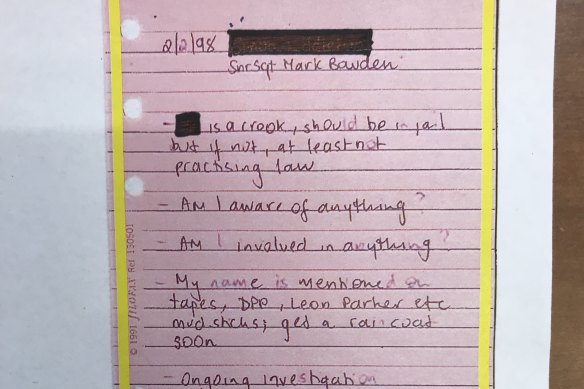 2/2/98
SnrSgt Mark Bowden
- is a crook, should be in jail
but if not, at least not
practising law
- AM I aware of anything?
- AM I involved in anything?
- My name is mentioned on
tapes, DPP, Leon Parker etc
mud sticks; get a raincoat
soon
- Ongoing investigation
© 1991 FILOFAX Ref 130501